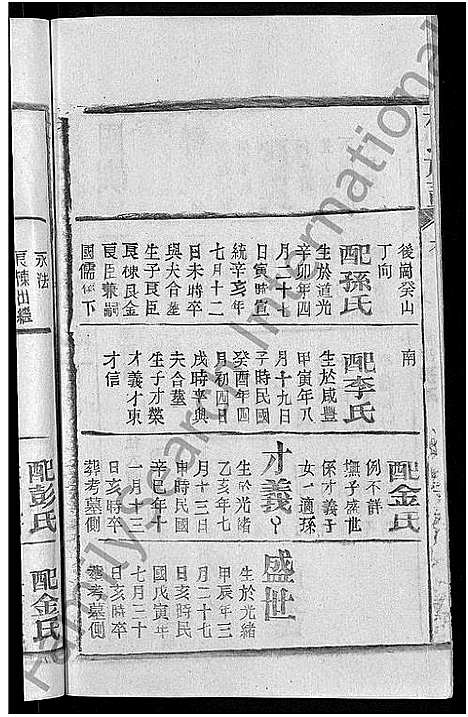 後崗癸山
丁向
配孫氏
生於道光
辛卯年四
月二十七
日寅時宣
統辛亥年
七月十二
日未時卒
與夫合墓
生子良臣
良棟良金
良臣兼嗣
國儒係下
南
配李氏
生於咸豐
甲寅年八
月十九日
子時民國
癸酉年四
月初四日
戌時卒與
夫合墓
生子才榮
才義才東
才信
配金氏
例不詳
撫子盛世
係才義子
女一適孫
才義
生於光緒
乙亥年七
月十三日
申時民國
辛巳年十
一月十三
日亥時卒
葬考墓側
盛世
生於光緒
甲辰年三
月二十七
日亥時民
國戊寅年
七月二十
日亥時卒
葬考墓側
永法
良棟出繼
配彭氏
配金氏
FamilySearch International